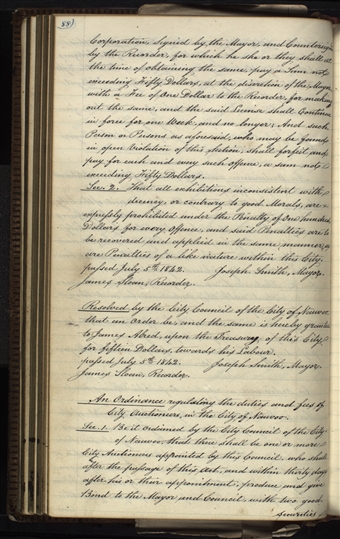 88)
Corporation, Signed by the Mayor, and Countersign
by the Recorder, for which he she or they shall at
the time of obtaining the same, pay a Sum not
exceeding Fifty Dollars, at the discretion of the Mayor,
with a Fee of One Dollar to the Recorder, for making
out the same, and the said License shall Continue
in force for one Week, and no longer; And such
Person or Persons as aforesaid, who may be found
in open Violation of this Section, shall forfeit and
pay for each and every such offence, a sum not
exceeding Fifty Dollars.
Sec. 2. That all exhibitions inconsistent with
decency, or contrary to good Morals, are
expressly prohibited under the Penalty of One hundred
Dollars for every Offence, and said Penalties are to
be recovered and applied in the same manner as
are Penalties of a like nature within this City.
passed July 5th 1842. Joseph Smith, Mayor.
James Sloan, Recorder.
Resolved by the City Council of the City of Nauvoo,
that an Order be, and the same is hereby granted
to James Alred, upon the Treasury of this City
for fifteen Dollars, towards his Labour.
passed July 5th 1842. Joseph Smith, Mayor.
James Sloan, Recorder.
An Ordinance regulating the duties and fees of
City Auctioneers, in the City of Nauvoo.
Sec. 1. Be it ordained by the City Council of the City
of Nauvoo, that there shall be one or more
City Auctioneers appointed by this Council, who shall
after the passage of this Act, and within thirty days
after his or their appointment, produce and give
Bond to the Mayor and Council, with two good
Securities